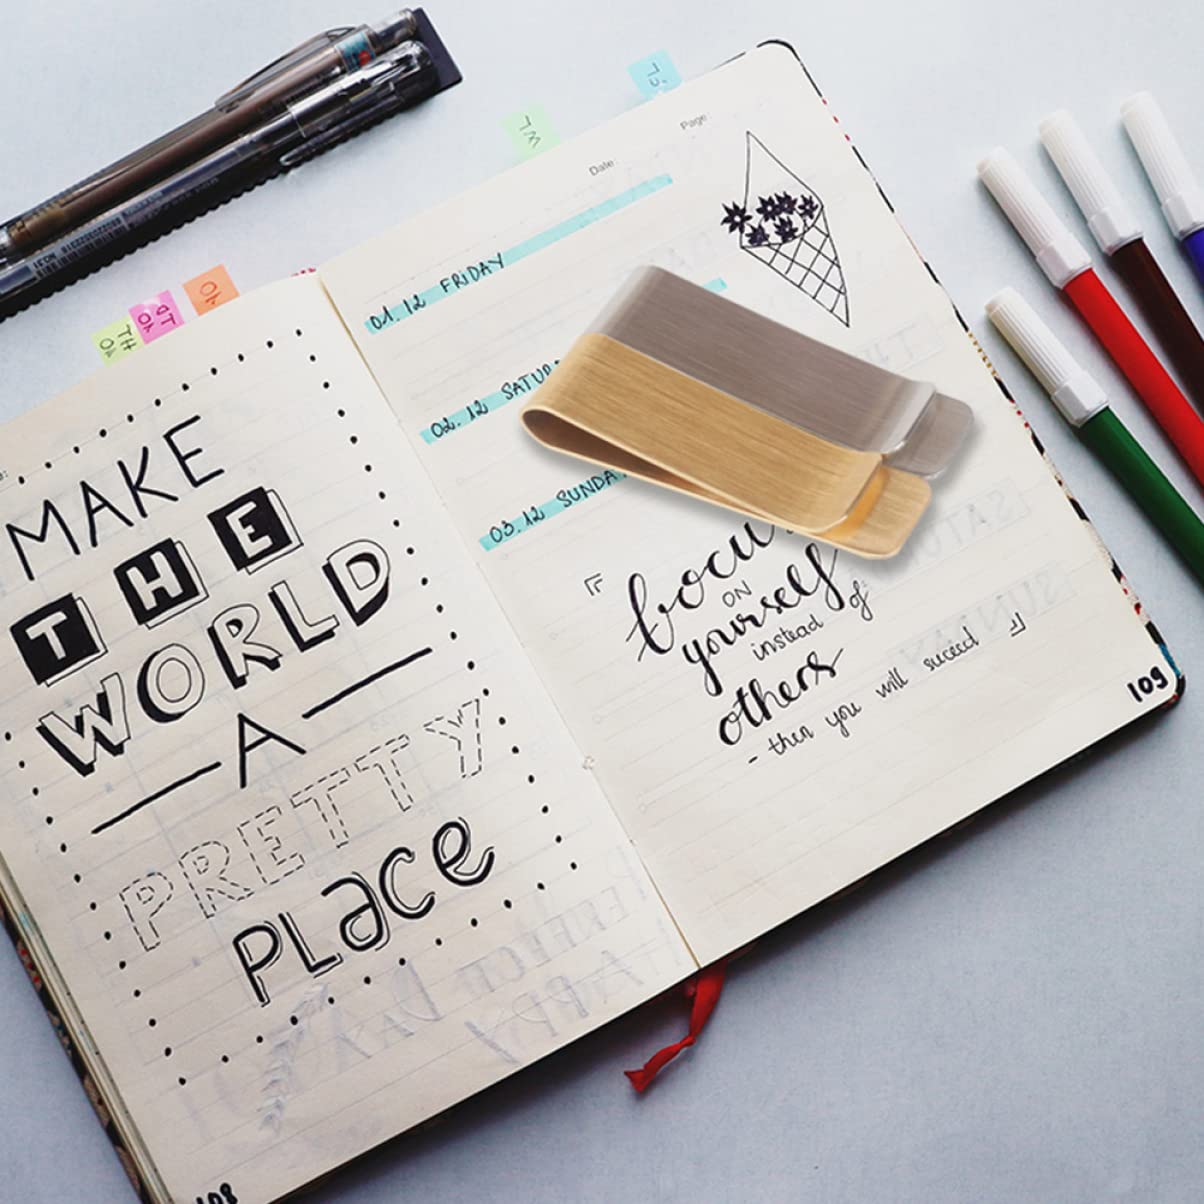 MAKE
THE
WORLD
A
PRETTY
PLace
108
Page
Date:
01. 12 FRIDAY
02. 12 SATUR
03. 12 SUNDA
focu
ON
yourself
instead of
others
- then you will suceed
109